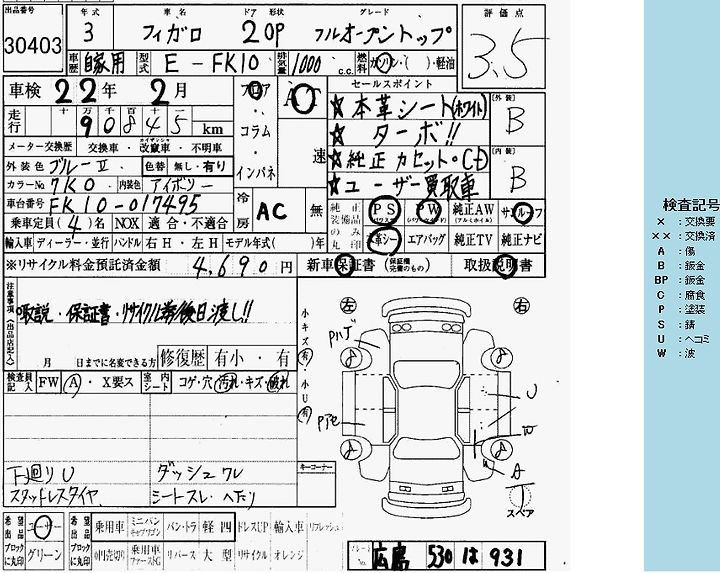 出品番号 年式 車名 ドア 形状 グレード 評価点
30403 3 フィガロ 2 OP フルオープントップ 3.5
車歴 自家用 型式 E-FK10 排気量 1000 c.c. 燃料 ガソリン・( )・軽油
車検 22年 2月 フロア AT セールスポイント
走行 十万千百十一 90845 km ・コラム・インパネ 速
★本革シート(ホワイト) 外装 B
★ターボ!!
★純正カセット・CD 内装 B
★ユーザー買取車
メーター交換歴 交換車・改竄車・不明車
外装色 ブルーII 色替 無し・有り
カラーNo. 7K0 内装色 アイボリー
車台番号 FK10-017495 冷房 AC 無
乗車定員(4)名 NOX 適合・不適合
純正装備品のみ丸印 PS PW 純正AW サンルーフ
革シート エアバッグ 純正TV 純正ナビ
輸入車 ディーラー・並行 ハンドル 右H・左H モデル年式( )年
※リサイクル料金預託済金額 4,690円 新車保証書(保証欄完備のもの) 取扱説明書
注意事項(出品店記入)
取説・保証書・リサイクル券後日渡し!!
月 日までに名変できる方 修復歴 有小・有
検査員記入 FW A・X要ス 室内シート コゲ・穴・汚れ・キズ・破れ
小キズ 有 小U 有
左 右
Pハゲ
Pアセ
U
W
A
スペア
下廻りU ダッシュワレ
スタッドレスタイヤ シートスレ・ヘタリ
キーコーナー
希望ブロックに丸印 ユーザー グリーン
出品 乗用車 ミニバン バン・トラ 軽四 ドレスUP 輸入車 リフレッシュ
0円売切り 乗用車 リバース 大型 リサイクル オレンジ
広島 530 は 931
検査記号
× :交換要
×× :交換済
A :傷
B :鈑金
BP :鈑金
C :腐食
P :塗装
S :錆
U :ヘコミ
W :波